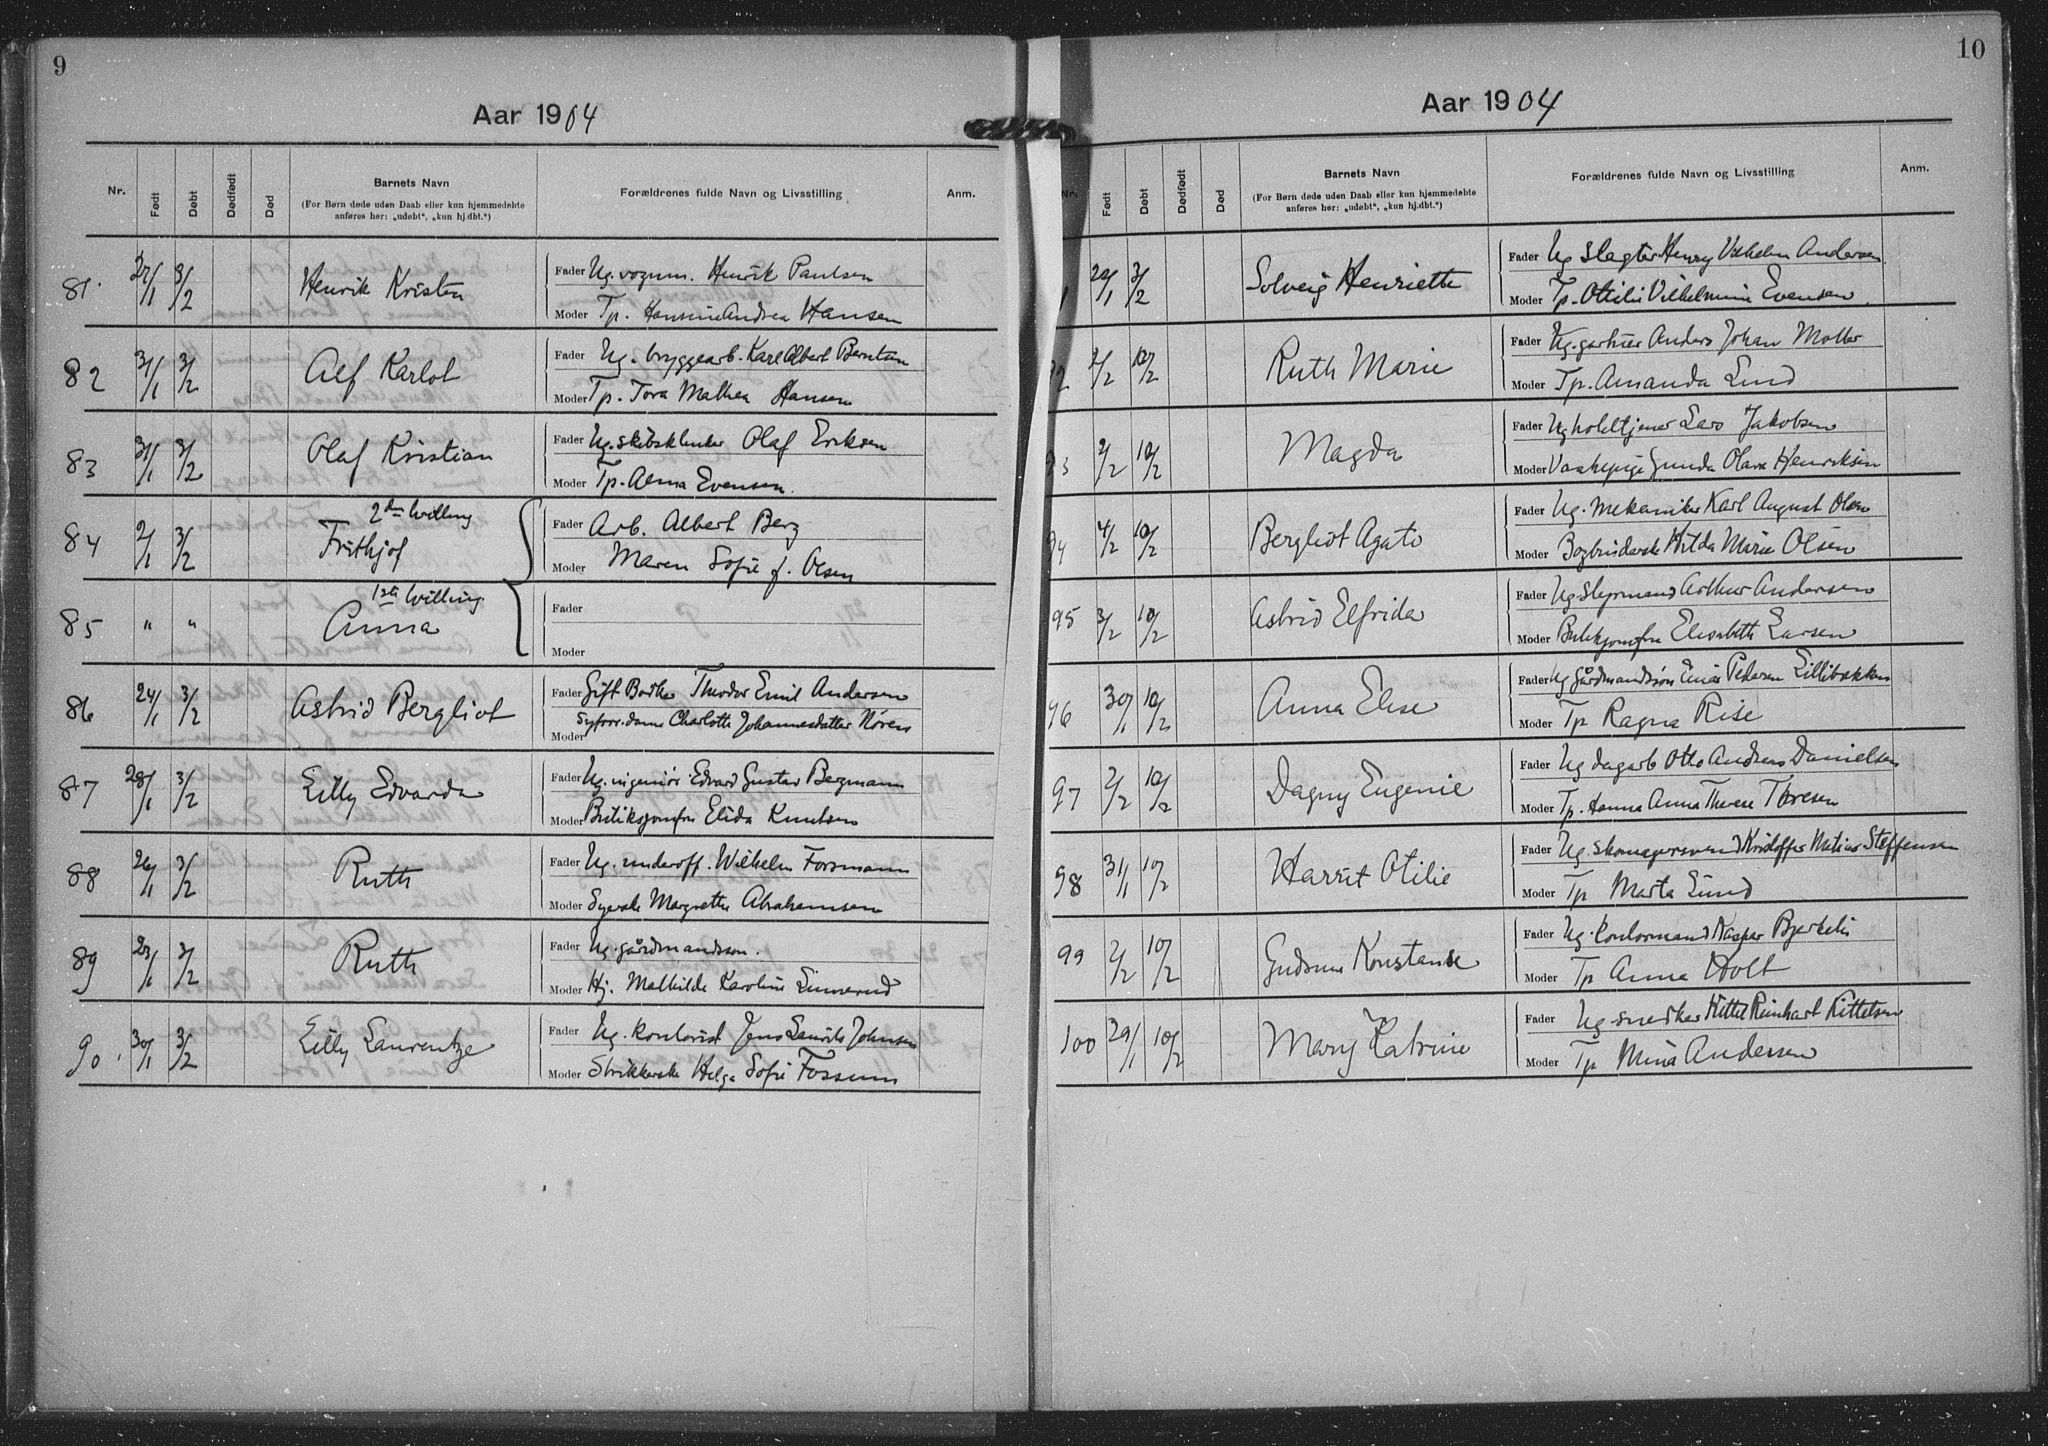 9
Aar 1904
Nr.
Født
Døbt
Dødfødt
Død
Barnets Navn
(For Børn døde uden Daab eller kun hjemmedøbte
anføres her: „udøbt“, „kun hj.dbt.“)
Forældrenes fulde Navn og Livsstilling
Anm.
81. 27/1 3/2 Henrik Kristen
Fader Ug. vognm. Henrik Paulsen
Moder Tp. Hansine Andrea Hansen
82 31/1 3/2 Alf Karlot
Fader Ug. bryggearb. Karl Albert Berntsen
Moder Tp. Tora Mathea Hansen
83 31/1 3/2 Olaf Kristian
Fader Ug. skibsklinker Olaf Eriksen
Moder Tp. Alma Evensen.
2den tvilling
84 2/1 3/2 Frithjof
Fader Arb. Albert Berg
Moder Maren Sofie f. Olsen
1ste tvilling
85 " " Anna
Fader
Moder
86 24/1 3/2 Astrid Bergliot
Fader Gift Theodor Emil Andersen
Moder Charlotte Johannesdatter Nørens
87 28/1 3/2 Lilly Edvarda
Fader Ug. ingeniør Edvard Gustav Bergmann
Moder Butiksjomfru Elida Knutsen
88 26/1 3/2 Ruth
Fader Ug. underoff. Wilhelm Forsmann
Moder Syerske Margrethe Abrahamsen
89 23/1 3/2 Ruth
Fader Ug. gårdmandsson.
Moder Hj. Mathilde Karoline Linnerud
90. 30/1 3/2 Lilly Laurentze
Fader Ug. kontorist Jens Laurits Johnsen
Moder Strikkerske Helga Sofie Fossum
10
Aar 1904
Nr.
Født
Døbt
Dødfødt
Død
Barnets Navn
(For Børn døde uden Daab eller kun hjemmedøbte
anføres her: „udøbt“, „kun hj.dbt.“)
Forældrenes fulde Navn og Livsstilling
Anm.
1 29/1 3/2 Solveig Henriette
Fader Ug slagter Henry Vilhelm Andersen
Moder Tp. Otilie Vilhelmine Evensen.
2 2/2 10/2 Ruth Marie
Fader Ug. gartner Anders Johan Moller
Moder Tp. Amanda Lind
3 2/2 10/2 Magda
Fader Ug hoteltjener Lars Jakobsen
Moder Vaskepige Gunda Olava Henriksen
94 4/2 10/2 Bergliot Agato
Fader Ug. mekaniker Karl August Olsen
Moder Bogbinderske Hilda Marie Olsen
95 3/2 10/2 Astrid Elfrida
Fader Ug styrmand Arthur Andersen
Moder Butikjomfru Elisabeth Larsen
96 30/1 10/2 Anna Elise
Fader Ug gårdmandssøn Einar Pedersen Lillibakken
Moder Tp Ragna Rise
97 2/2 10/2 Dagny Eugenie
Fader Ug dagarb Otto Andreas Danielsen
Moder Tp. Hanna Anna Therese Thoresen
98 31/1 10/2 Harriet Otilie
Fader Ug. skomagersvend Kristoffer Matias Steffensen
Moder Tp Marta Lund
99 2/2 10/2 Gudrun Konstanse
Fader Ug. kontormand Kaspar Bjerkeli
Moder Tp Anna Holt
100 29/1 10/2 Mary Katrine
Fader Ug snedker Kittel Reinhart Kittelsen
Moder Tp Mina Andersen